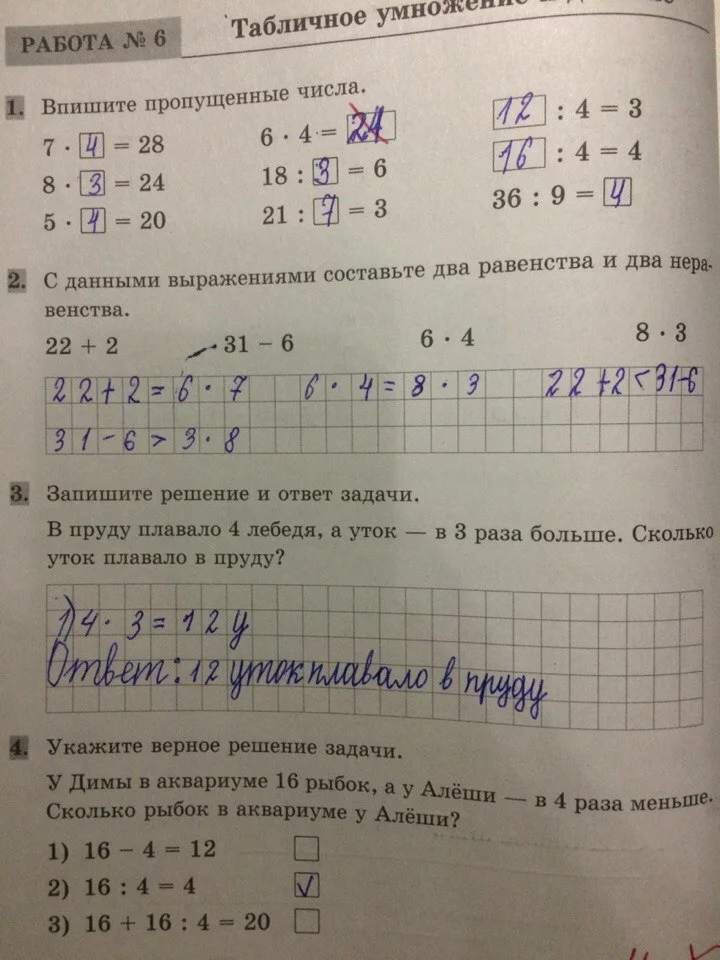 РАБОТА № 6
Табличное умножение и
1. Впишите пропущенные числа.
7 · 4 = 28 6 · 4 = 24 12 : 4 = 3
8 · 3 = 24 18 : 3 = 6 16 : 4 = 4
5 · 4 = 20 21 : 7 = 3 36 : 9 = 4
2. С данными выражениями составьте два равенства и два нера-
венства.
22 + 2 31 − 6 6 · 4 8 · 3
22+2=6·7 6·4=8·3 22+2<31-6
31-6>3·8
3. Запишите решение и ответ задачи.
В пруду плавало 4 лебедя, а уток — в 3 раза больше. Сколько
уток плавало в пруду?
1) 4·3=12 у
Ответ: 12 уток плавало в пруду
4. Укажите верное решение задачи.
У Димы в аквариуме 16 рыбок, а у Алёши — в 4 раза меньше.
Сколько рыбок в аквариуме у Алёши?
1) 16 − 4 = 12
2) 16 : 4 = 4 √
3) 16 + 16 : 4 = 20